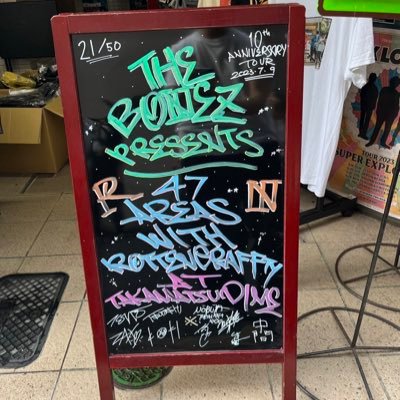 21/50
10th
ANNIVERSARY
TOUR
2023.7.9
THE
BONEZ
PRESENTS
47
AREAS
WITH
ROTTENGRAFFTY
AT
TAKAMATSU DIME
TOUR 2023
SUPER EXPL